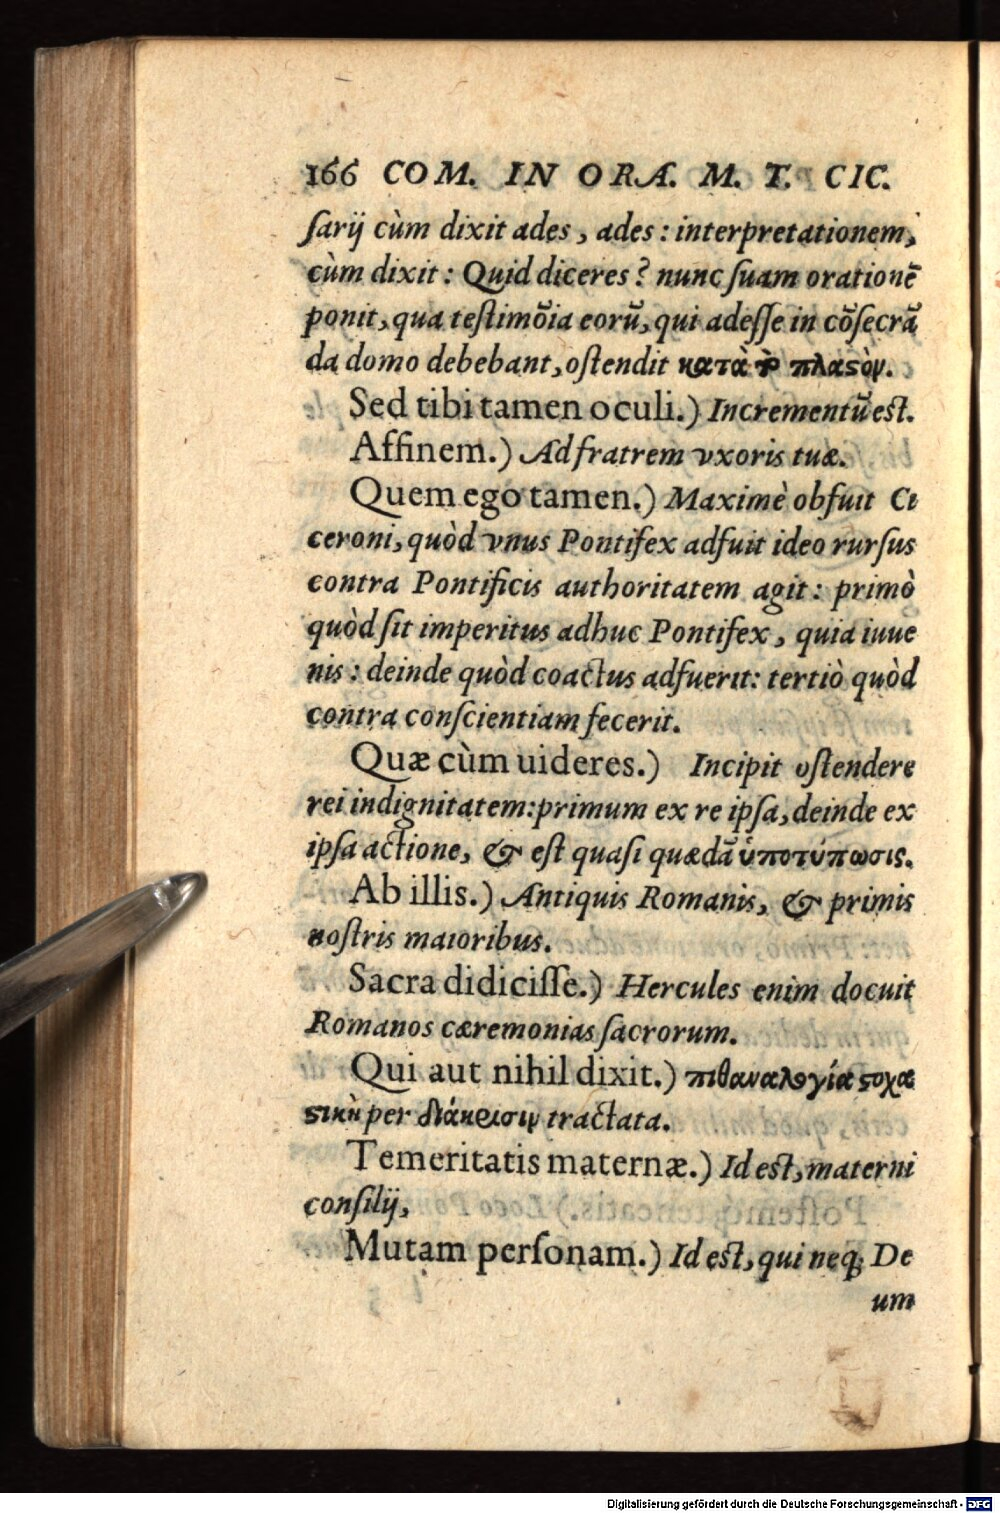 166 COM. IN ORA. M. T. CIC.
sarij cùm dixit ades, ades: interpretationem,
cùm dixit: Quid diceres? nunc suam orationē
ponit, qua testimōia eorū, qui adesse in cōsecrā
da domo debebant, ostendit κατὰ τὸ πλαςὸν.
Sed tibi tamen oculi.) Incrementū est.
Affinem.) Ad fratrem vxoris tuæ.
Quem ego tamen.) Maximè obfuit Ci
ceroni, quòd vnus Pontifex adfuit ideo rursus
contra Pontificis authoritatem agit: primò
quòd sit imperitus adhuc Pontifex, quia iuue
nis: deinde quòd coactus adfuerit: tertiò quòd
contra conscientiam fecerit.
Quæ cùm uideres.) Incipit ostendere
rei indignitatem: primum ex re ipsa, deinde ex
ipsa actione, & est quasi quædā ὑποτύπωσις.
Ab illis.) Antiquis Romanis, & primis
nostris maioribus.
Sacra didicisse.) Hercules enim docuit
Romanos cæremonias sacrorum.
Qui aut nihil dixit.) πιθαναλογία ςοχα
ςικὴ per διάκρισιν tractata.
Temeritatis maternæ.) Id est, materni
consilij,
Mutam personam.) Id est, qui neq; De
um
Digitalisierung gefördert durch die Deutsche Forschungsgemeinschaft - DFG